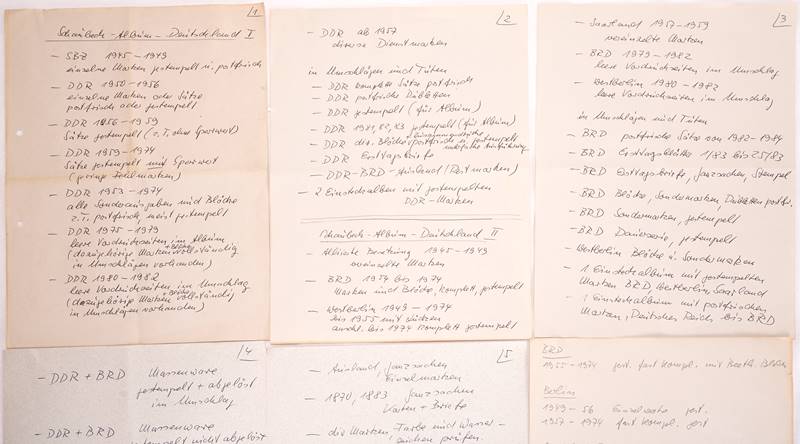 1
Schaubeck-Album-Deutschland I
- SBZ 1945-1949
einzelne Marken gestempelt u. postfrisch
- DDR 1950-1956
einzelne Marken oder Sätze
postfrisch oder gestempelt
- DDR 1956-1959
Sätze gestempelt (z.T. ohne Sperrwert)
- DDR 1959-1974
Sätze gestempelt mit Sperrwert
- DDR 1953-1974
alle Sonderausgaben und Blöcke
z.T. postfrisch, meist gestempelt
- DDR 1975-1979
leere Vordruckseiten im Album
(dazugehörige Marken + Blöcke vollständig
in Umschlägen vorhanden)
- DDR 1980-1982
leere Vordruckseiten im Umschlag
(dazugehörige Marken + Blöcke vollständig
in Umschlägen vorhanden)
2
- DDR ab 1957
diverse Dienstmarken
in Umschlägen und Tüten
- DDR komplette Sätze postfrisch
- DDR postfrische Dubletten
- DDR gestempelt (für Album)
- DDR 1981, 82, 83 gestempelt (für Album)
- DDR div. Blöcke, postfrisch + gestempelt
- DDR Ersttagsbriefe
- DDR-BRD-Ausland (Restmarken)
- 2 Einsteckalben mit gestempelten
DDR-Marken
Schaubeck-Album-Deutschland II
- Alliierte Besetzung 1945-1949
vereinzelte Marken
- BRD 1954 bis 1974
Marken und Blöcke, komplett, gestempelt
- Westberlin 1949-1974
bis 1955 mit Lücken
anschl. bis 1974 komplett gestempelt
3
- Saarland 1957-1959
vereinzelte Marken
- BRD 1979-1982
leere Vordruckseiten im Umschlag
- Westberlin 1980-1982
leere Vordruckseiten im Umschlag
in Umschlägen und Tüten
- BRD postfrische Sätze von 1982-1984
- BRD Ersttagsblätter 1/83 bis 25/83
- BRD Ersttagsbriefe, Ganzsachen, Stempel
- BRD Blöcke, Sondermarken, Dubletten postfr.
- BRD Sondermarken, gestempelt
- BRD Dauerserie, gestempelt
- Westberlin Blöcke u. Sondermarken
- 1 Einsteckalbum mit gestempelten
Marken BRD, Westberlin, Saarland
- 1 Einsteckalbum mit postfrischen
Marken, Deutsches Reich bis BRD
4
- DDR + BRD Massenware
gestempelt + abgelöst
im Umschlag
- DDR + BRD Massenware
gestempelt nicht abgelöst
5
- Ausland, Ganzsachen
Einzelmarken
- 1870, 1883 Ganzsachen
Karten + Briefe
- die Marken, Farbe und Wasser-
zeichen prüfen.
BRD
1955-1974 gest. fast kompl. mit
Berlin
1949-56 Einzelwerte gest.
1957-1974 fast kompl. gest.